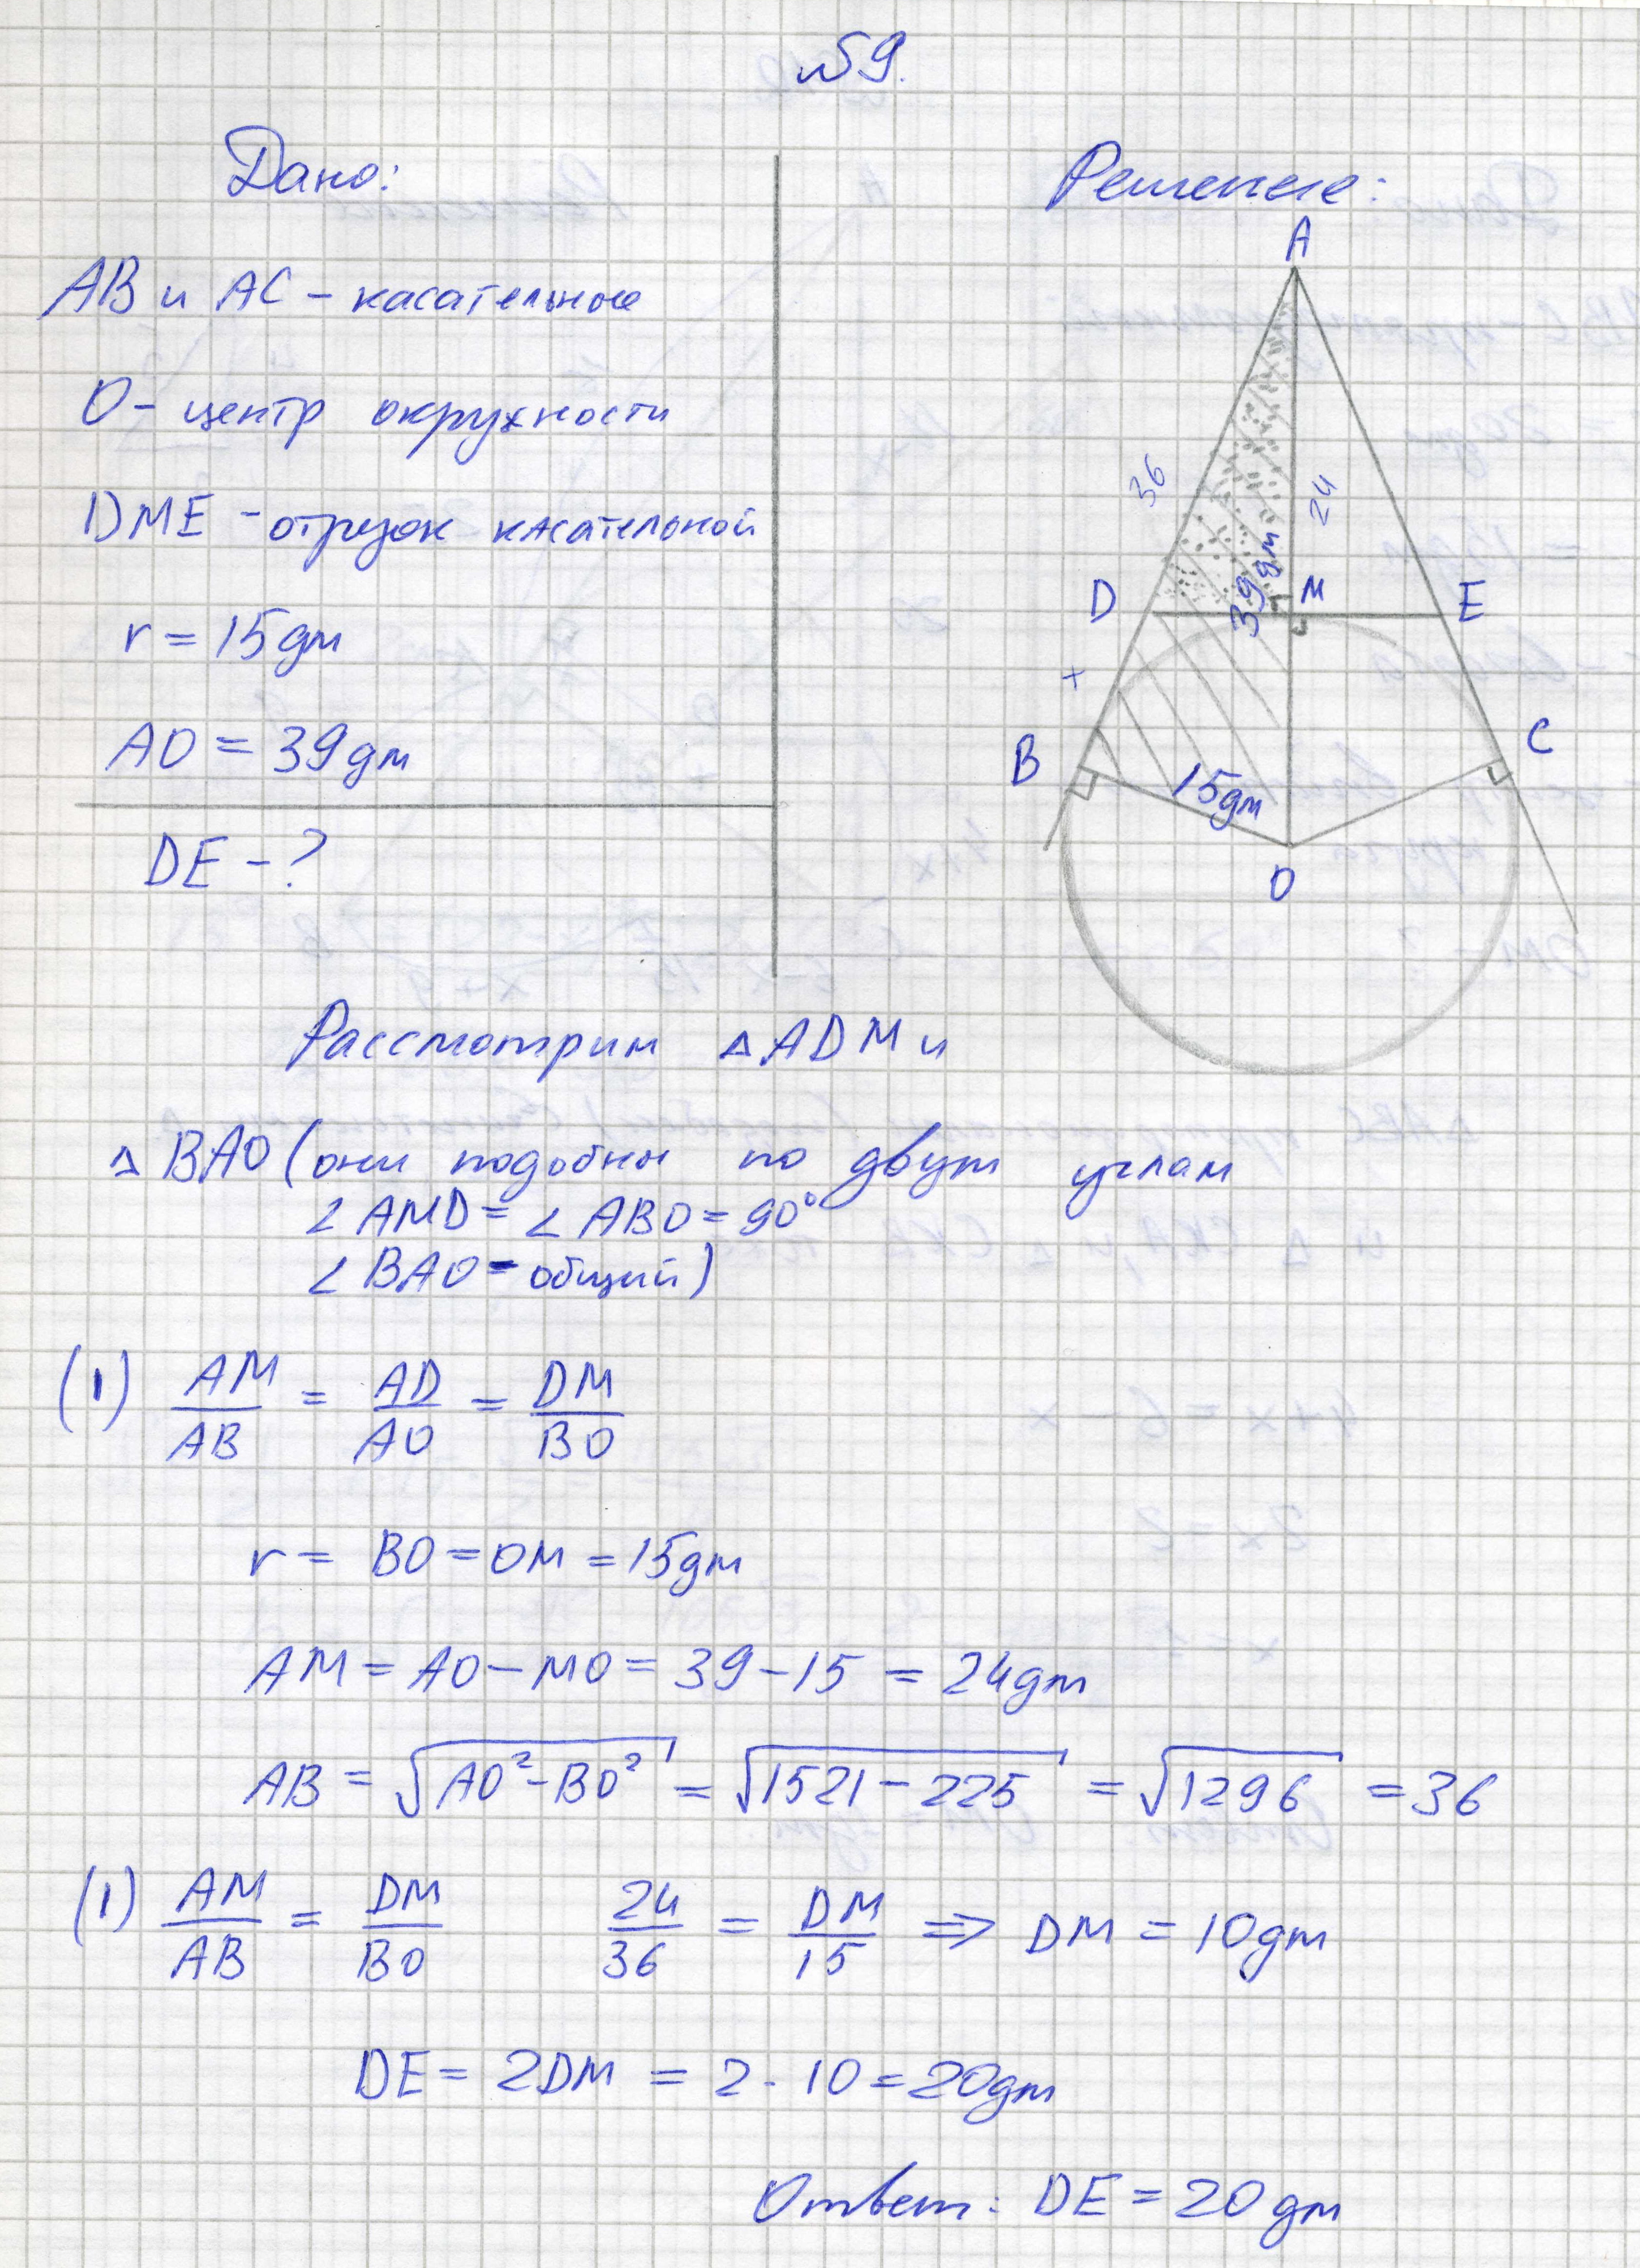 №9.
Дано:
AB и AC – касательные
O – центр окружности
DME – отрезок касательной
r = 15 дм
AO = 39 дм
DE – ?
Решение:
A
36
24
39 дм
D
M
E
x
B
C
15 дм
O
Рассмотрим △ADM и
△BAO (они подобны по двум углам
∠AMD = ∠ABO = 90°
∠BAO – общий)
(1) AM/AB = AD/AO = DM/BO
r = BO = OM = 15 дм
AM = AO – MO = 39 – 15 = 24 дм
AB = √(AO² – BO²) = √(1521 – 225) = √1296 = 36
(1) AM/AB = DM/BO 24/36 = DM/15 ⇒ DM = 10 дм
DE = 2DM = 2 · 10 = 20 дм
Ответ: DE = 20 дм